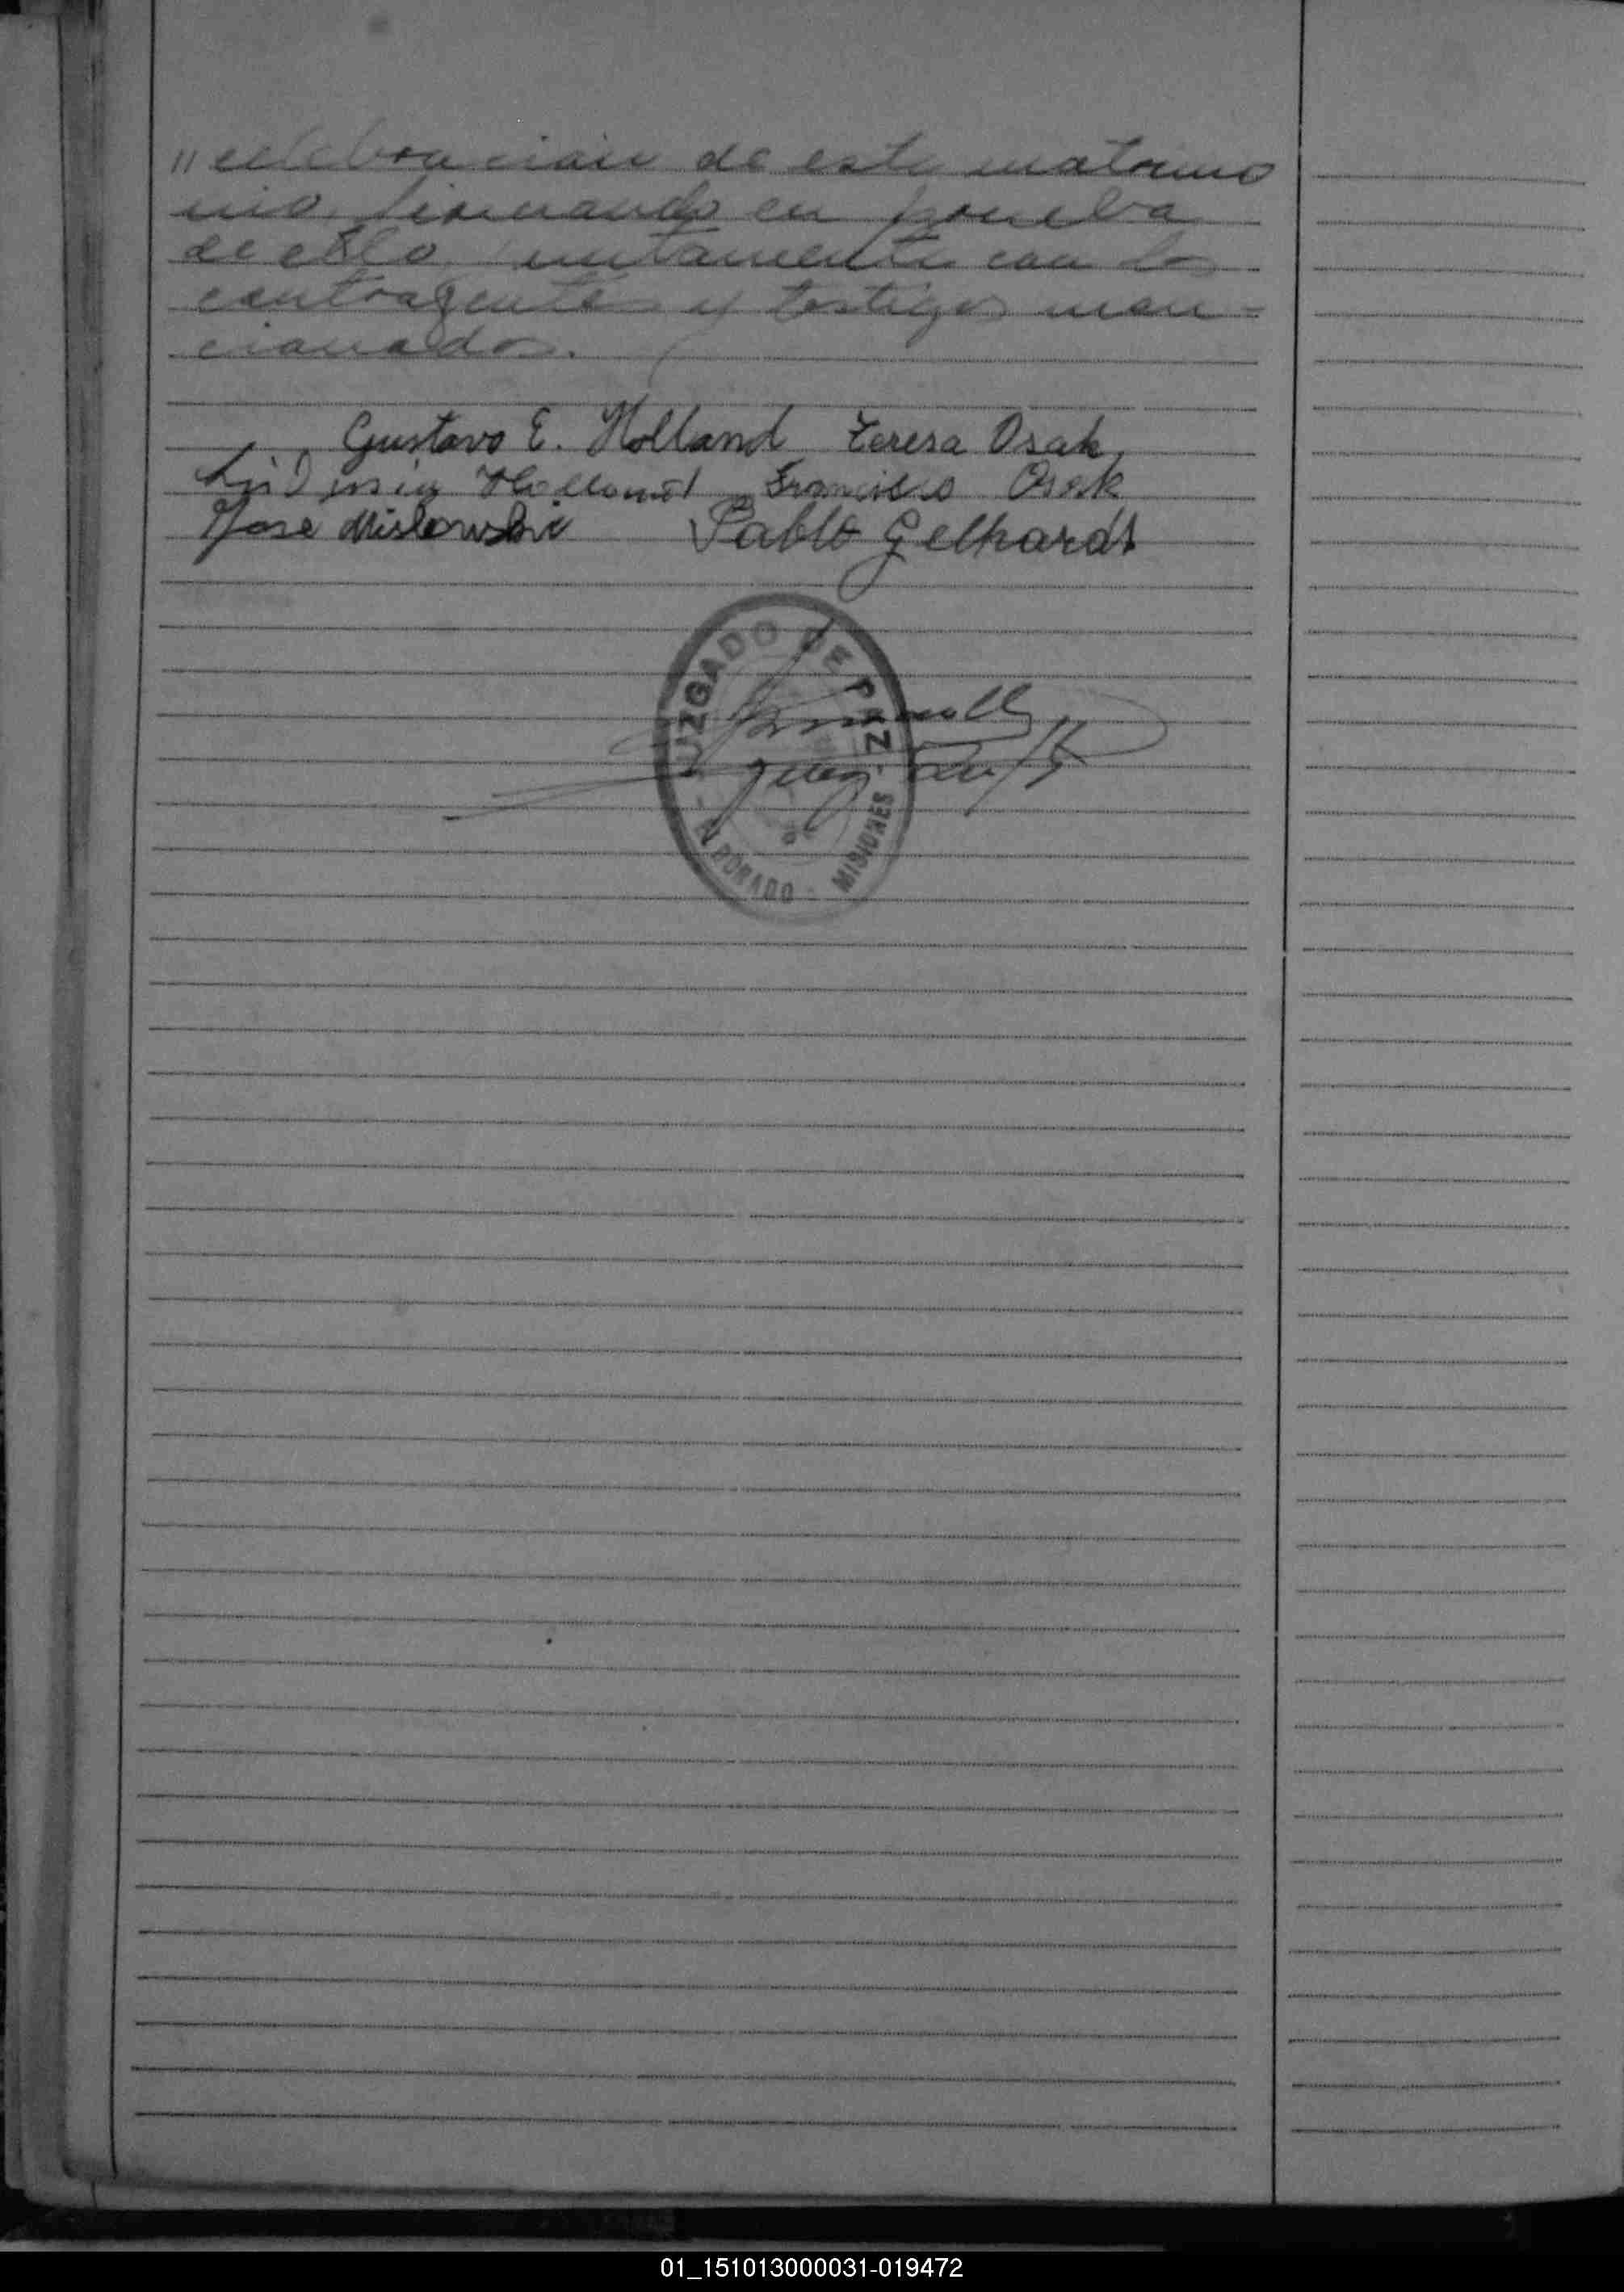 " celebracion de este matrimo
nio, firmando en prueba
de ello juntamente con los
contrayentes y testigos men-
cionados.
Gustavo E. Holland Teresa Osak
Holland Francisco Osak
Jose Mislowski Pablo Gelhardt
JUZGADO DE PAZ
Juez
EL DORADO - MISIONES
01_151013000031-019472